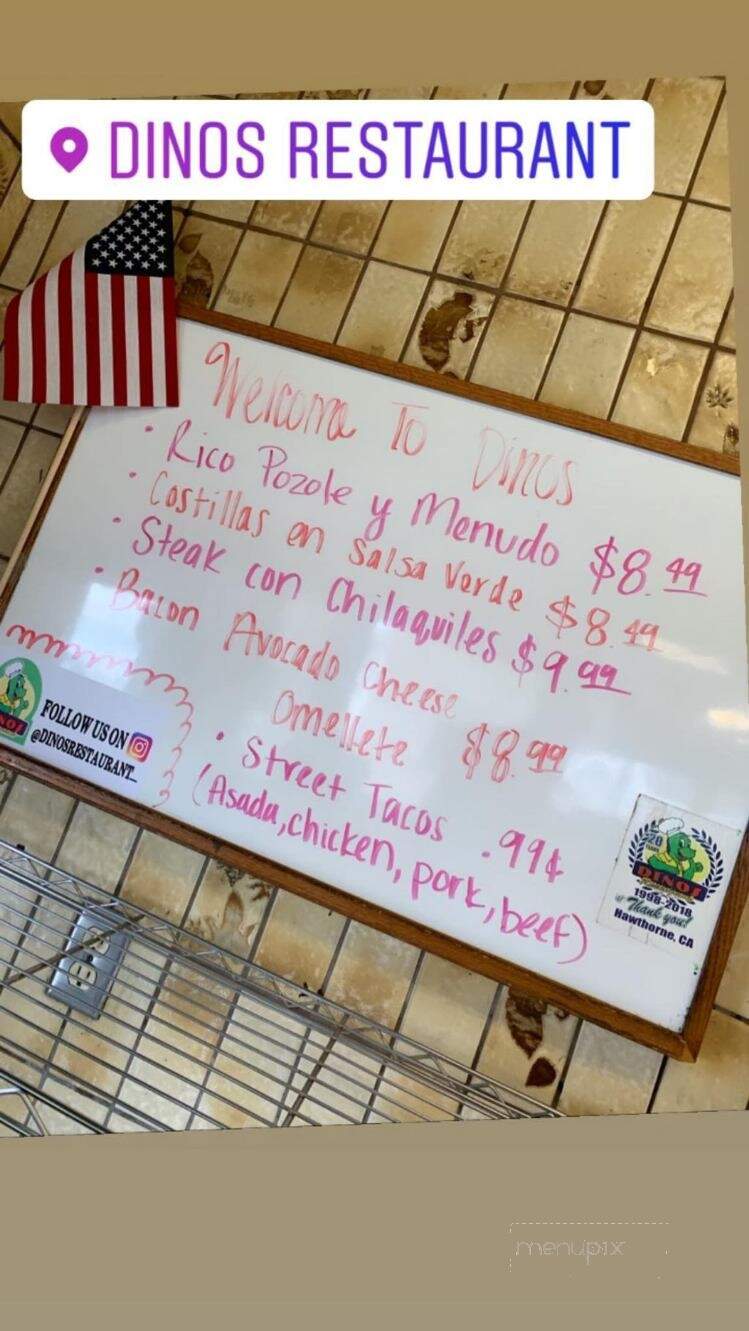 DINOS RESTAURANT
Welcome To Dinos
• Rico Pozole y Menudo $8.49
• Costillas en Salsa Verde $8.49
• Steak con Chilaquiles $9.99
• Bacon Avocado Cheese
Omellete $8.99
• Street Tacos .99¢
(Asada, chicken, pork, beef)
FOLLOW US ON
@DINOSRESTAURANT_
20
YEARS
DINOS
1998-2018
Thank you!
Hawthorne, CA
menupix